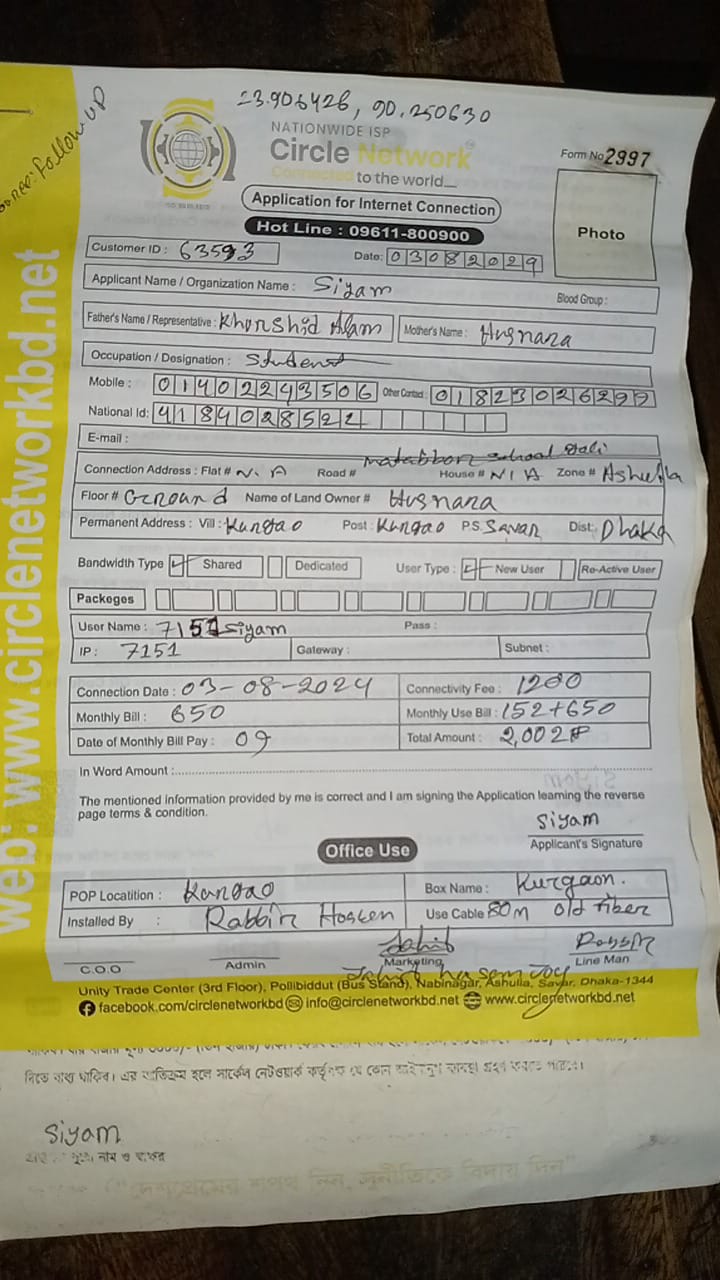 23.906426, 90.250630
Follow up
NATIONWIDE ISP
Circle Network
Connected to the world....
Form No 2997
Application for Internet Connection
Hot Line : 09611-800900
Photo
Customer ID : 63593 Date: 03082029
Applicant Name / Organization Name : Siyam Blood Group :
Father's Name / Representative : Khurshid Alam Mother's Name : Husnara
Occupation / Designation : Student
Mobile : 01402243506 Other Contact : 01823026299
National Id: 4184028522
E-mail :
Matabbor school Gali
Connection Address : Flat # N.A Road # House # N/A Zone # Ashulia
Floor # Ground Name of Land Owner # Husnara
Permanent Address : Vill : Kurgao Post : Kurgao P.S. Savar Dist: Dhaka
Bandwidth Type Shared Dedicated User Type : New User Re-Active User
Packeges
User Name : 7151siyam Pass :
IP : 7151 Gateway : Subnet :
Connection Date : 03-08-2024 Connectivity Fee : 1200
Monthly Bill : 650 Monthly Use Bill : 152+650
Date of Monthly Bill Pay : 09 Total Amount : 2,002
In Word Amount :
The mentioned information provided by me is correct and I am signing the Application learning the reverse
page terms & condition.
Siyam
Applicant's Signature
Office Use
POP Locatition : Kurgao Box Name : Kurgaon.
Installed By : Rabbir Hosten Use Cable 80m old fiber
C.O.O Admin Marketing Line Man
Unity Trade Center (3rd Floor), Pollibiddut (Bus Stand), Nabinagar, Ashulia, Savar, Dhaka-1344
facebook.com/circlenetworkbd info@circlenetworkbd.net www.circlenetworkbd.net
web: www.circlenetworkbd.net
দিতে বাধ্য থাকিব। এর ব্যতিক্রম হলে সার্কেল নেটওয়ার্ক কর্তৃপক্ষ যে কোন আইনানুগ ব্যবস্থা গ্রহণ করতে পারবে।
Siyam
নাম ও স্বাক্ষর
("দেশপ্রেমের শপথ নিন, দুর্নীতিকে বিদায় দিন"